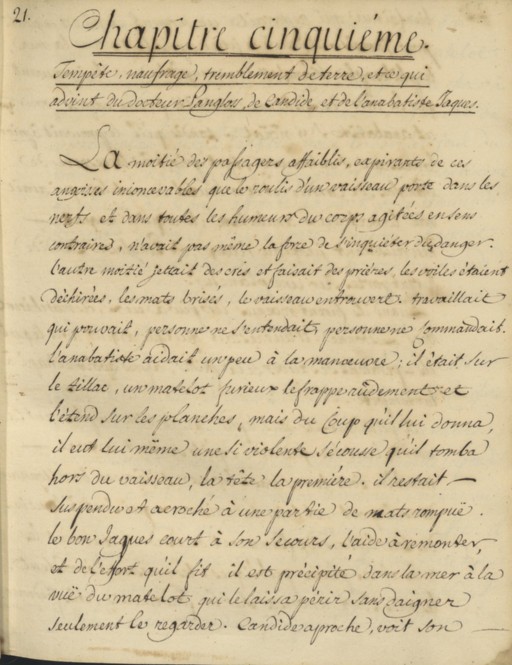 21.
Chapître cinquiéme.
Tempête, naufrage, tremblement de terre, et ce qui
advint du docteur Panglos, de Candide et de l'anabatiste Jaques.
La moitié des passagers affaiblis, expirants de ces
angoises inconcevables que le roulis d'un vaisseau porte dans les
nerfs et dans toutes les humeurs du corps agitées en sens
contraires, n'avait pas même la force de s'inquiéter du danger.
l'autre moitié jettait des cris et faisait des prières, les voiles étaient
déchirées, les mats brisés, le vaisseau entrouvert. travaillait
qui pouvait, personne ne s'entendait, personne ne commandait.
l'anabatiste aidait un peu à la manœuvre; il était sur
le tillac, un matelot furieux le frappe rudement et
l'étend sur les planches, mais du coup qu'il lui donna,
il eut lui même une si violente secousse qu'il tomba
hors du vaisseau, la tête la première. il restait —
suspendu et acroché à une partie de mats rompuë.
le bon Jaques court à son secours, l'aide à remonter,
et de l'effort qu'il fit il est précipité dans la mer à la
vuë du matelot qui le laissa périr sans daigner
seulement le regarder. Candide aproche, voit son —